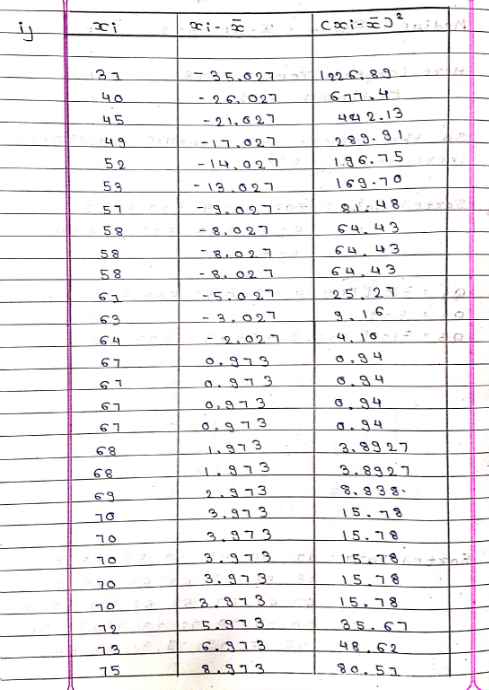 i) xi xi - x̄ (xi - x̄)²
31 -35.027 1226.89
40 -26.027 677.4
45 -21.027 442.13
49 -17.027 289.91
52 -14.027 196.75
53 -13.027 169.70
57 -9.027 81.48
58 -8.027 64.43
58 -8.027 64.43
58 -8.027 64.43
61 -5.027 25.27
63 -3.027 9.16
64 -2.027 4.10
67 0.973 0.94
67 0.973 0.94
67 0.973 0.94
67 0.973 0.94
68 1.973 3.8927
68 1.973 3.8927
69 2.973 8.838
70 3.973 15.78
70 3.973 15.78
70 3.973 15.78
70 3.973 15.78
70 3.973 15.78
72 5.973 35.67
73 6.973 48.62
75 8.973 80.51